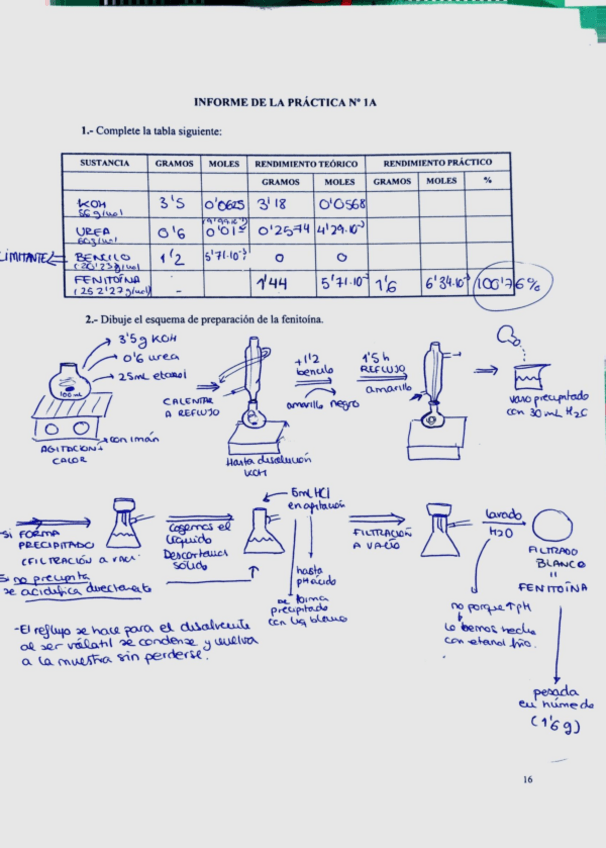 INFORME DE LA PRÁCTICA Nº 1A
1.- Complete la tabla siguiente:
SUSTANCIA GRAMOS MOLES RENDIMIENTO TEÓRICO RENDIMIENTO PRÁCTICO
GRAMOS MOLES GRAMOS MOLES %
KOH 3'5 0'0625 3'18 0'0568
56 g/mol
UREA 0'6 0'01 0'2574 4'29·10⁻³
60 g/mol
LIMITANTE BENCILO 1'2 5'71·10⁻³ 0 0
FENITOÍNA - 1'44 5'71·10⁻³ 1'6 6'34·10⁻³ 100'76%
(252'27g/mol)
2.- Dibuje el esquema de preparación de la fenitoína.
3'5g KOH
0'6 urea
25mL etanol
100 mL
AGITACION+
CALOR
con imán
CALENTAR
A REFLUJO
Hasta disolución
KOH
+1'2
bencilo
amarillo negro
1'5h
REFLUJO
amarillo
vaso precipitado
con 30 mL H₂O
SI FORMA
PRECIPITADO
(FILTRACIÓN A vacío
Si no precipita
se acidifica directamente
Cogemos el
líquido
Descartamos
sólido
5mL HCl
en agitación
hasta
pH ácido
se forma
precipitado
con liq blanco
FILTRACIÓN
A VACÍO
lavado
H₂O
no porque ↑pH
lo hemos hecho
con etanol frío.
FILTRADO
BLANCO
=
FENITOÍNA
pesada
en húmedo
(1'6g)
-El reflujo se hace para el disolvente
al ser volátil se condense y vuelva
a la muestra sin perderse.
16